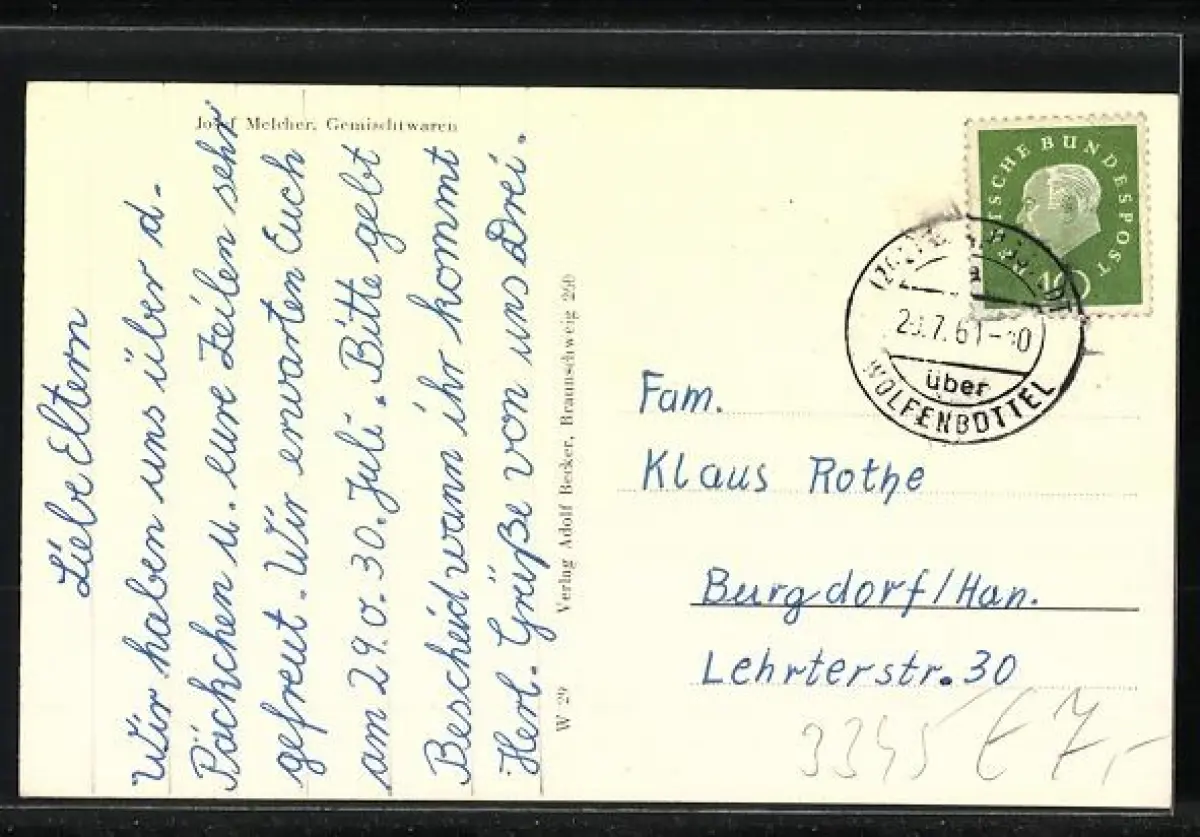 Josef Melcher, Gemischtwaren
Liebe Eltern
Wir haben uns über d.
Päckchen u. eure Zeilen sehr
gefreut. Wir erwarten Euch
am 29. o. 30. Juli. Bitte gebt
Bescheid wann ihr kommt
Herl. Grüße von uns Drei.
W 29 Verlag Adolf Becker, Braunschweig
DEUTSCHE BUNDESPOST
10
.7.61
über
WOLFENBÜTTEL
Fam.
Klaus Rothe
Burgdorf/Han.
Lehrterstr. 30
3345 € 7,-